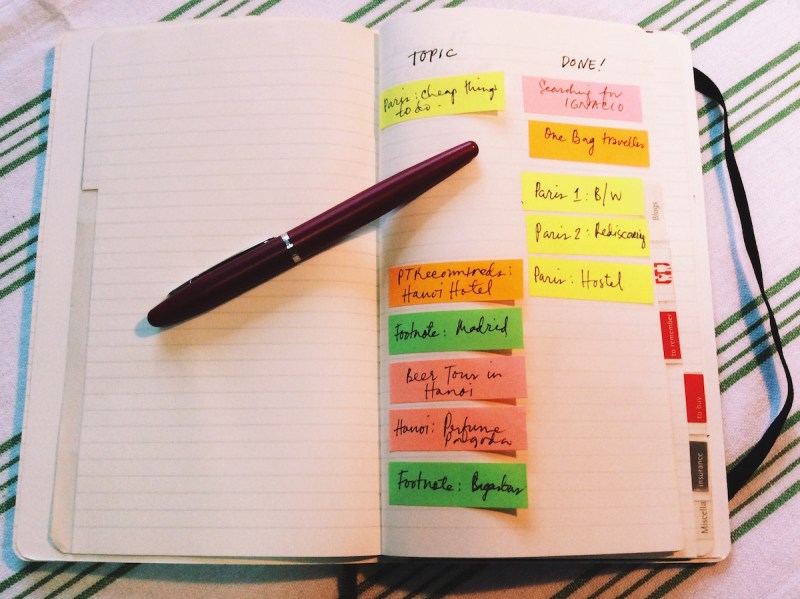 TOPIC
Paris: cheap things
to do -
PTRecommends:
Hanoi Hotel
Footnote: Madrid
Beer Tour in
Hanoi
Hanoi: Perfume
Pagoda
Footnote:
DONE!
Searching for
IGNACIO
One Bag traveller
Paris 1: B/W
Paris 2:
Paris: Hostel
Blogs
to remember
to buy
insurance
Miscella